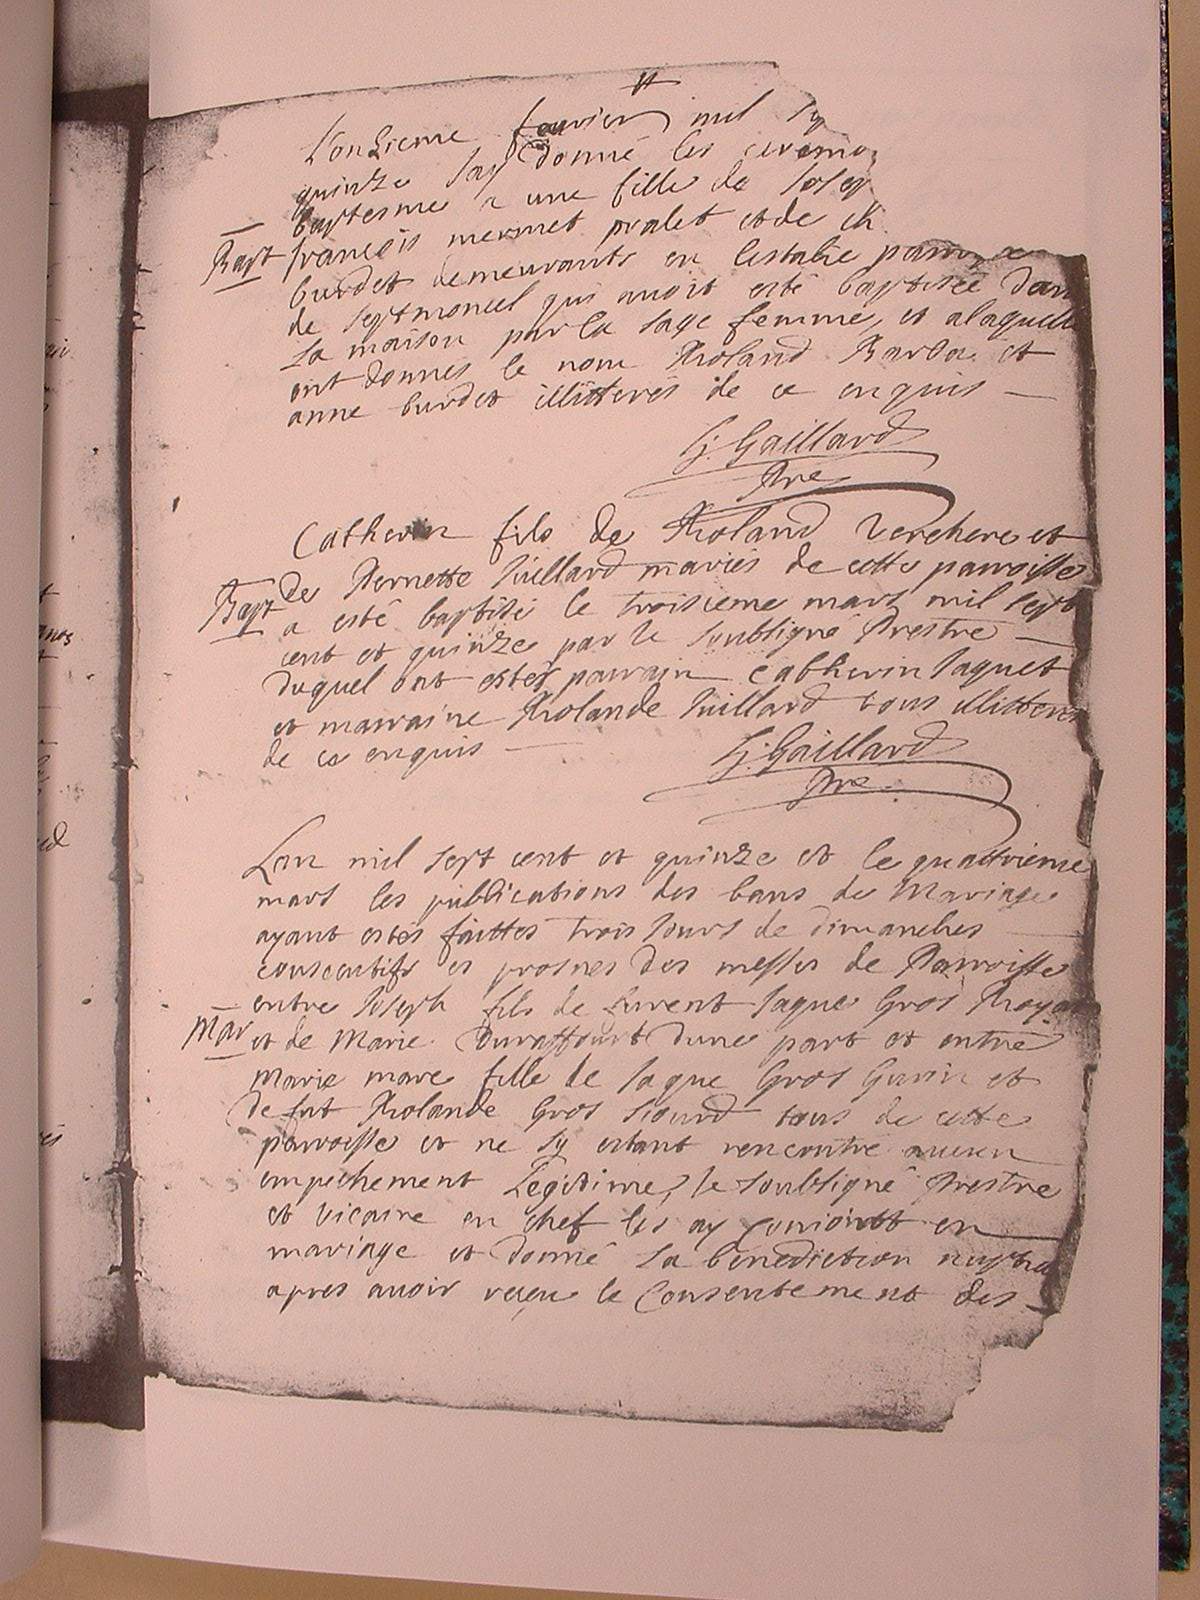 L'onzieme feuvrier mil
quinze Jay donné les ceremo
baptesme a une fille de Josep
Bapt françois mermet pralet et de
burdet demeurants en Lestabe parroisse
de septmoncel qui auoit esté baptisée dans
la maison par la sage femme, et alaquelle
ont donnes le nom Roland Barda et
anne burdet illitterés de ce enquis
G. Gaillard
Pre
Catherin fils de Roland Verchere et
de Pernette Juillard mariés de cette parroisse
Bapt a esté baptisé le troisieme mars mil sept
cent et quinze par le soubsigné Prestre
duquel ont estés parrain Catherin Jaquet
et marraine Rolande Juillard tous illitterés
de ce enquis
G. Gaillard
Pre
Lan mil sept cent et quinze et le quattrieme
mars les publications des bans de Mariage
ayant estés faittes trois Jours de dimanches
consecutifs es prosnes des messes de Parroisse
entre Joseph fils de Laurent Jaque Gros
Mar et de Marie Duraffourt dune part et entre
Marie mare fille de Jaque Gros Gurin et
de fut Rolande Gros tous de cette
parroisse et ne sy estant rencontré aucun
empechement Legitime, le soubsigné Prestre
et vicaire en chef les ay conioint en
mariage et donné la benediction nuptia
apres auoir receu le Consentement des